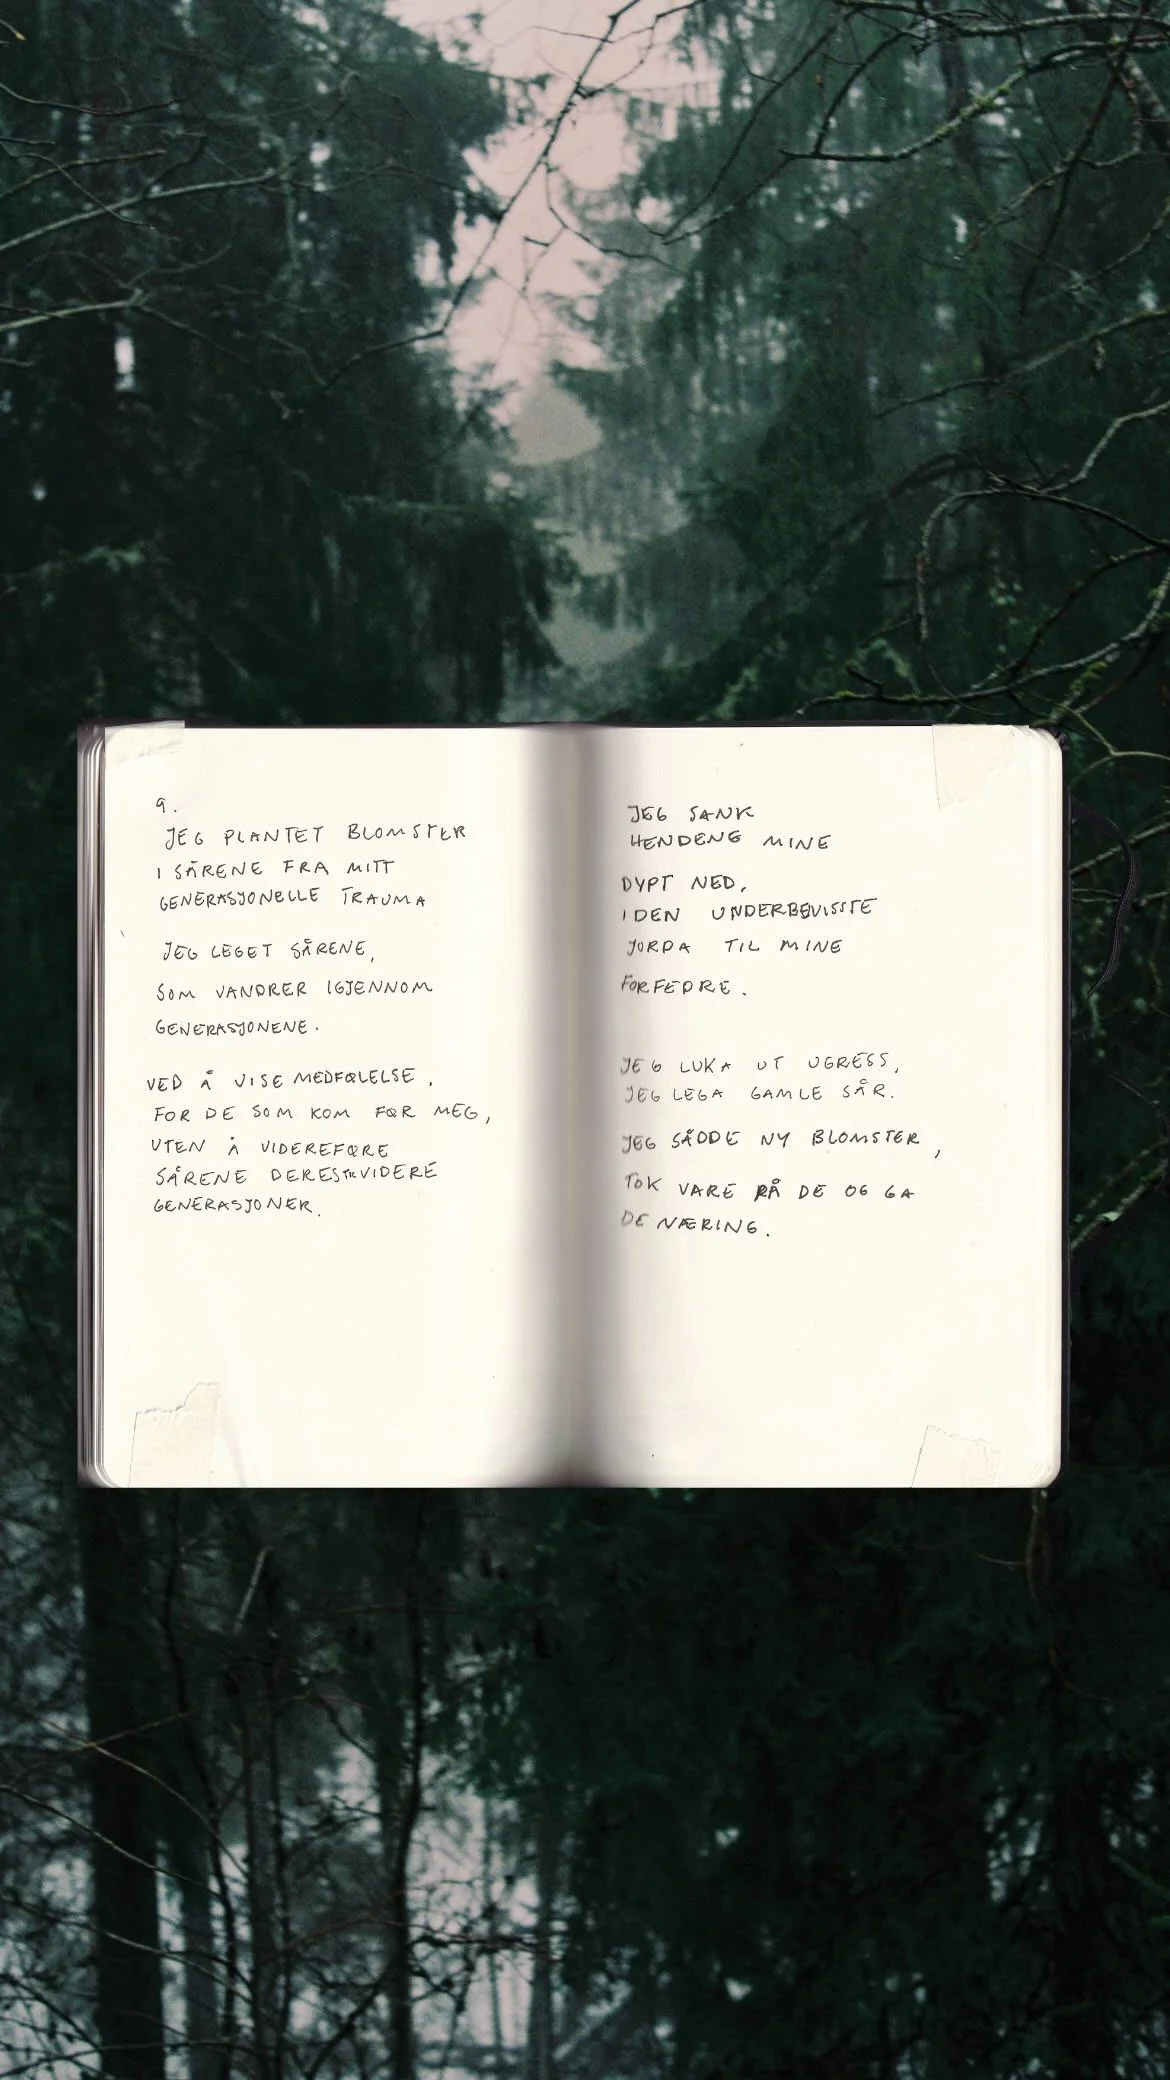 9.
JEG PLANTET BLOMSTER
I SÅRENE FRA MITT
GENERASJONELLE TRAUMA
JEG LEGET SÅRENE,
SOM VANDRER IGJENNOM
GENERASJONENE.
VED Å VISE MEDFØLELSE,
FOR DE SOM KOM FØR MEG,
UTEN Å VIDEREFØRE
SÅRENE DERES VIDERE
GENERASJONER.
JEG SANK
HENDENE MINE
DYPT NED,
I DEN UNDERBEVISSTE
JORDA TIL MINE
FORFEDRE.
JEG LUKA UT UGRESS,
JEG LEGA GAMLE SÅR.
JEG SÅDDE NY BLOMSTER,
TOK VARE PÅ DE OG GA
DE NÆRING.